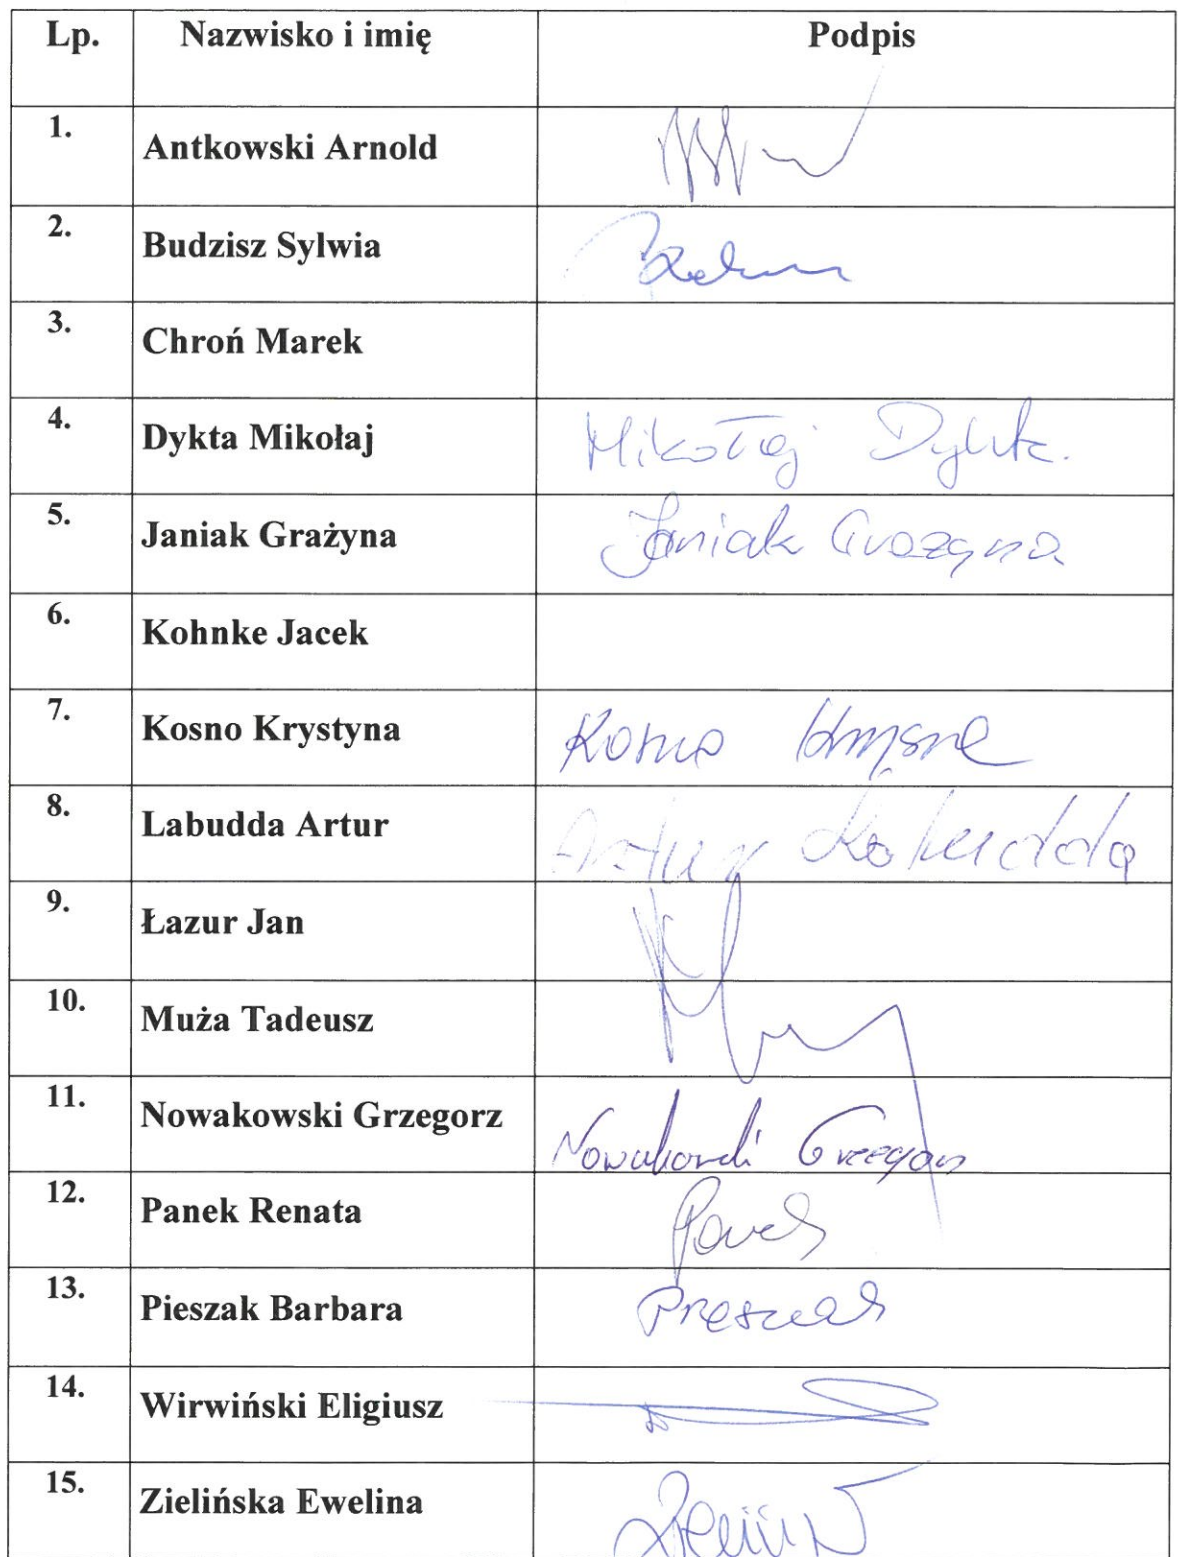 Lp. Nazwisko i imię Podpis
1. Antkowski Arnold
2. Budzisz Sylwia
3. Chroń Marek
4. Dykta Mikołaj Mikołaj Dykta
5. Janiak Grażyna Janiak Grażyna
6. Kohnke Jacek
7. Kosno Krystyna Kosno
8. Labudda Artur Artur Labudda
9. Łazur Jan
10. Muża Tadeusz
11. Nowakowski Grzegorz Nowakowski Grzegorz
12. Panek Renata Panek
13. Pieszak Barbara Pieszak
14. Wirwiński Eligiusz
15. Zielińska Ewelina